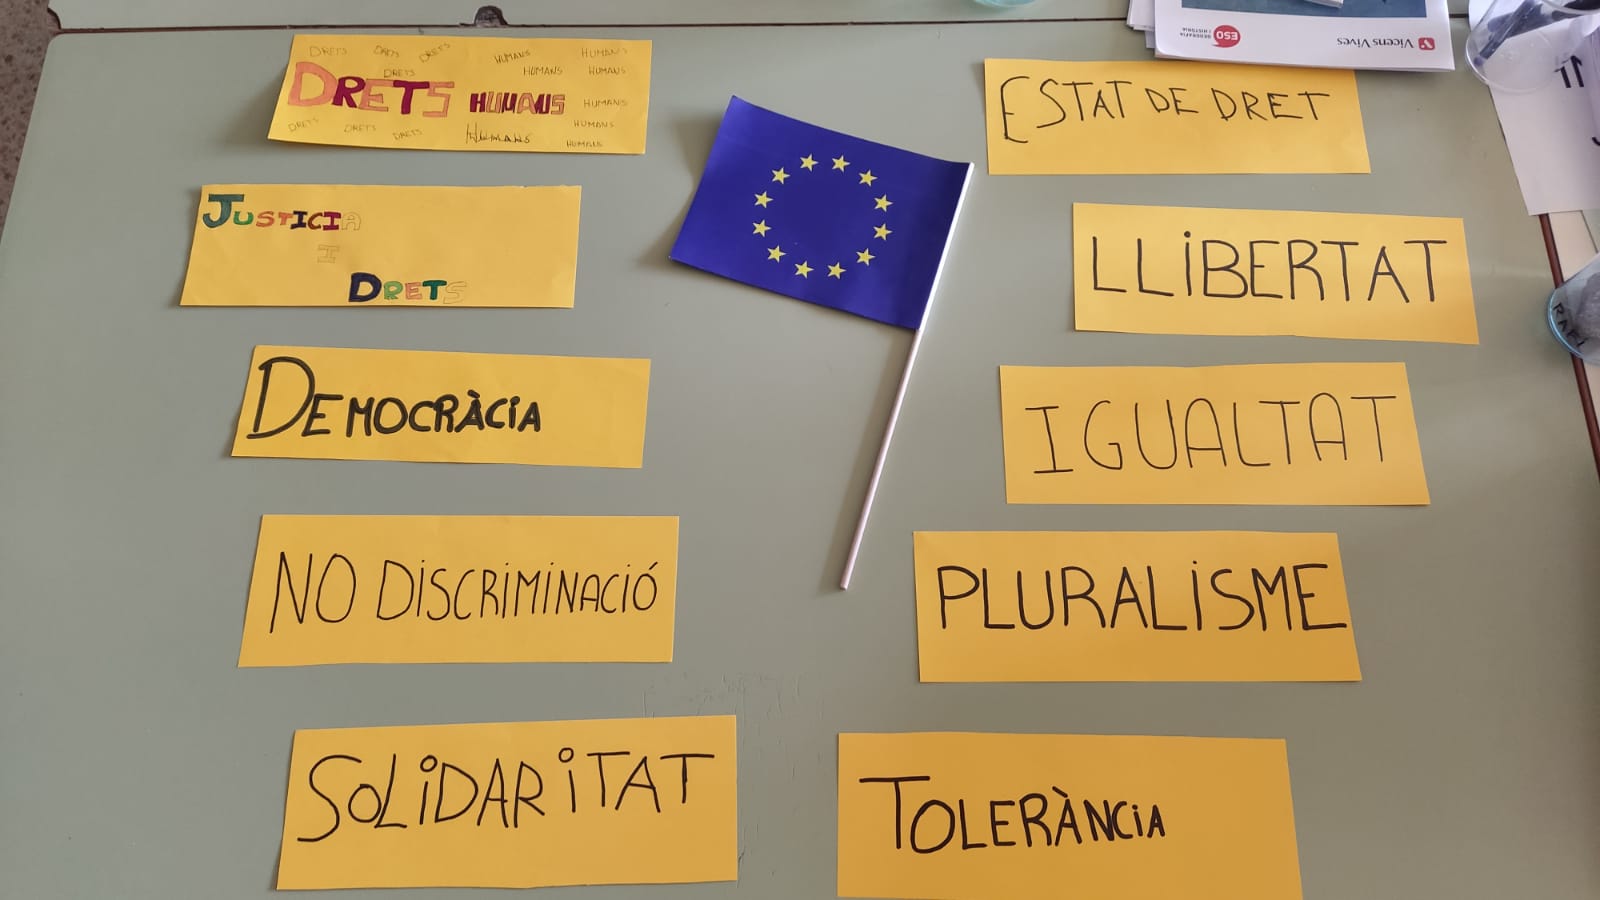 DRETS DRETS DRETS HUMANS HUMANS
DRETS HUMANS HUMANS
DRETS HUMANS HUMANS
DRETS DRETS DRETS HUMANS HUMANS
HUMANS
JUSTICIA
I
DRETS
DEMOCRÀCIA
NO DISCRIMINACIÓ
SOLIDARITAT
ESTAT DE DRET
LLIBERTAT
IGUALTAT
PLURALISME
TOLERÀNCIA
Vicens Vives
ESO
GEOGRAFIA
I HISTÒRIA